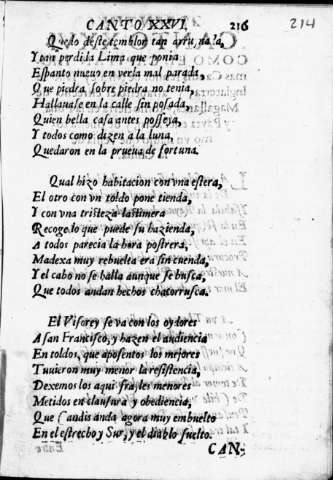 CANTO XXVI. 216
214
Quedo deste temblor tan arruynada,
Y tan perdida Lima que ponia
Espanto nueuo en verla mal parada,
Que piedra sobre piedra no tenia,
Hallauase en la calle sin posada,
Quien bella casa antes posseya,
Y todos como dizen a la luna,
Quedaron en la prueua de fortuna.
Qual hizo habitacion con vna estera,
El otro con vn toldo pone tienda,
Y con vna tristeza lastimera
Recoge lo que puede su hazienda,
A todos parecia la hora postrera,
Madexa muy rebuelta era sin cuenda,
Y el cabo no se halla aunque se busca,
Que todos andan hechos chacorrusca.
El Visorey se va con los oydores
A san Francisco, y hazen el audiencia
En toldos, que aposentos los mejores
Tuuieron muy menor la resistencia,
Dexemos los aqui frayles menores
Metidos en clausura y obediencia,
Que Candis anda agora muy embuelto
En el estrecho y Sur, y el diablo suelto.
CAN-